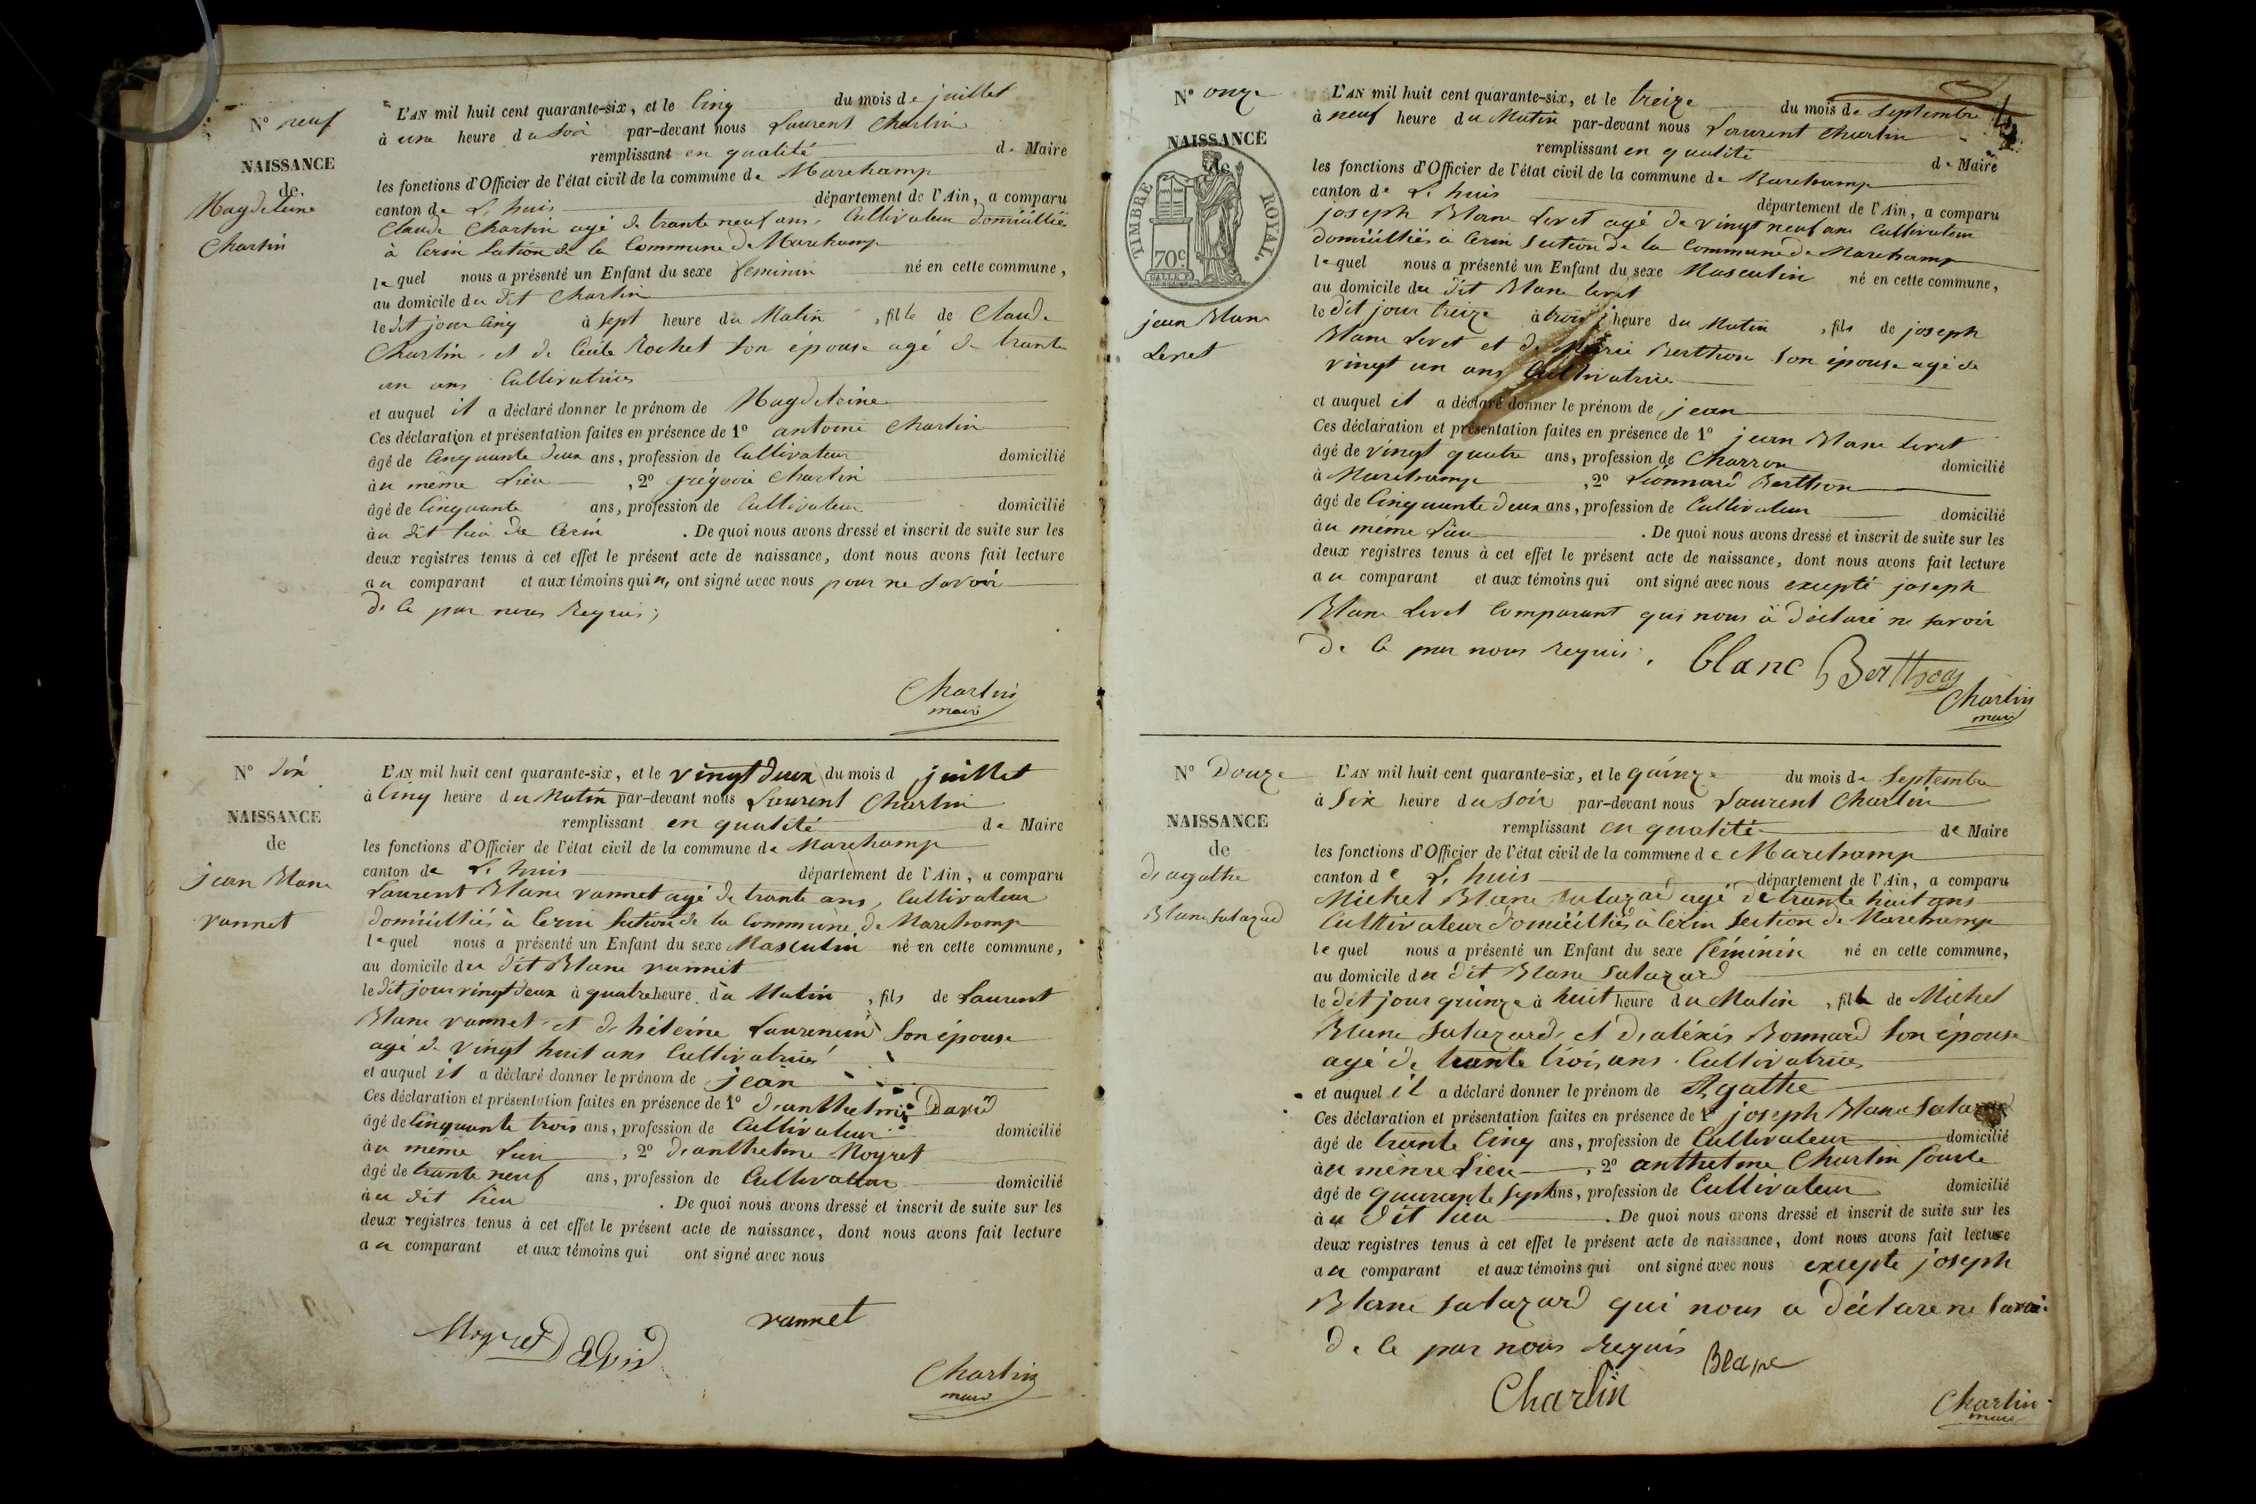 N° neuf
NAISSANCE
de
Magdeleine
Charlin
L'AN mil huit cent quarante-six, et le Cinq du mois de juillet
à une heure du Soir par-devant nous Laurent Charlin
remplissant en qualité de Maire
les fonctions d'Officier de l'état civil de la commune de Marchamp
canton de L'huis département de l'Ain, a comparu
Claude Charlin agé de trante neuf ans, Cultivateur domicillié
à Cerin Section de la Commune de Marchamp
lequel nous a présenté un Enfant du sexe feminin né en cette commune,
au domicile du dit Charlin
le dit jour Cinq à Sept heure du Matin, fille de Claude
Charlin, et de Cécile Rochet Son épouse agé de trante
un ans Cultivatrice
et auquel il a déclaré donner le prénom de Magdeleine
Ces déclaration et présentation faites en présence de 1° antoine Charlin
âgé de Cinquante deux ans, profession de Cultivateur domicilié
àu même Lieu, 2° grégoire Charlin
âgé de Cinquante ans, profession de Cultivateur domicilié
àu dit lieu de Cerin. De quoi nous avons dressé et inscrit de suite sur les
deux registres tenus à cet effet le présent acte de naissance, dont nous avons fait lecture
au comparant et aux témoins qui n, ont signé avec nous pour ne Savoir
de Ce par nous Requis;
Charlin
maire
N° Dix
NAISSANCE
de
jean Blanc
vannet
L'AN mil huit cent quarante-six, et le vingt deux du mois d juillet
à Cinq heure du Matin par-devant nous Laurent Charlin
remplissant en qualité de Maire
les fonctions d'Officier de l'état civil de la commune de Marchamp
canton de L'huis département de l'Ain, a comparu
Laurent Blanc vannet agé de trante ans, Cultivateur
domicilliés à Cerin Section de la Commune de Marchamp
lequel nous a présenté un Enfant du sexe Masculin né en cette commune,
au domicile du dit Blanc vannet
le dit jour vingt deux à quatre heure du Matin, fils de Laurent
Blanc vannet et de héleine Laurencin Son épouse
agé de vingt huit ans Cultivatrice
et auquel il a déclaré donner le prénom de jean
Ces déclaration et présentation faites en présence de 1° d'anthelme David
âgé de Cinquante trois ans, profession de Cultivateur domicilié
àu même Lieu, 2° d'anthelme Moyret
âgé de trante neuf ans, profession de Cultivateur domicilié
àu dit lieu. De quoi nous avons dressé et inscrit de suite sur les
deux registres tenus à cet effet le présent acte de naissance, dont nous avons fait lecture
au comparant et aux témoins qui ont signé avec nous
vannet
Moyret David
Charlin
maire
N° onze
NAISSANCE
de
TIMBRE ROYAL.
70c
jean Blanc
Levet
L'AN mil huit cent quarante-six, et le treize du mois de Septembre
à neuf heure du Matin par-devant nous Laurent Charlin
remplissant en qualité de Maire
les fonctions d'Officier de l'état civil de la commune de Marchamp
canton de L'huis département de l'Ain, a comparu
joseph Blanc Levet agé de vingt neuf ans Cultivateur
domicilliés à Cerin Section de la Commune de Marchamp
lequel nous a présenté un Enfant du sexe Masculin né en cette commune,
au domicile du dit Blanc Levet
le dit jour treize à trois heure du Matin, fils de joseph
Blanc Levet et de Marie Berthon Son épouse agé de
vingt un ans Cultivatrice
et auquel il a déclaré donner le prénom de jean
Ces déclaration et présentation faites en présence de 1° jean Blanc Levet
âgé de vingt quatre ans, profession de Charron domicilié
à Marchamp, 2° Léonnard Berthon
âgé de Cinquante deux ans, profession de Cultivateur domicilié
àu même Lieu. De quoi nous avons dressé et inscrit de suite sur les
deux registres tenus à cet effet le présent acte de naissance, dont nous avons fait lecture
au comparant et aux témoins qui ont signé avec nous excepté joseph
Blanc Levet Comparant qui nous à déclaré ne savoir
de Ce par nous Requis.
blanc Berthon
Charlin
maire
N° Douze
NAISSANCE
de
d'agathe
Blanc Salazard
L'AN mil huit cent quarante-six, et le quinze du mois de Septembre
à Six heure du Soir par-devant nous Laurent Charlin
remplissant en qualité de Maire
les fonctions d'Officier de l'état civil de la commune de Marchamp
canton de L'huis département de l'Ain, a comparu
Michel Blanc Salazard agé de trante huit ans
Cultivateur domicilliés à Cerin Section de Marchamp
lequel nous a présenté un Enfant du sexe féminin né en cette commune,
au domicile du dit Blanc Salazard
le dit jour quinze à huit heure du Matin, fille de Michel
Blanc Salazard, et d'aléxis Bonnard Son épouse
agé de trante trois ans. Cultivatrice
et auquel il a déclaré donner le prénom de Agathe
Ces déclaration et présentation faites en présence de 1° joseph Blanc Salazard
âgé de trante Cinq ans, profession de Cultivateur domicilié
àu même Lieu, 2° anthelme Charlin
âgé de quarante Sept ans, profession de Cultivateur domicilié
àu dit lieu. De quoi nous avons dressé et inscrit de suite sur les
deux registres tenus à cet effet le présent acte de naissance, dont nous avons fait lecture
au comparant et aux témoins qui ont signé avec nous excepte joseph
Blanc Salazard qui nous a déclare ne Savoi
de Ce par nous Requis
Blanc
Charlin
Charlin
maire